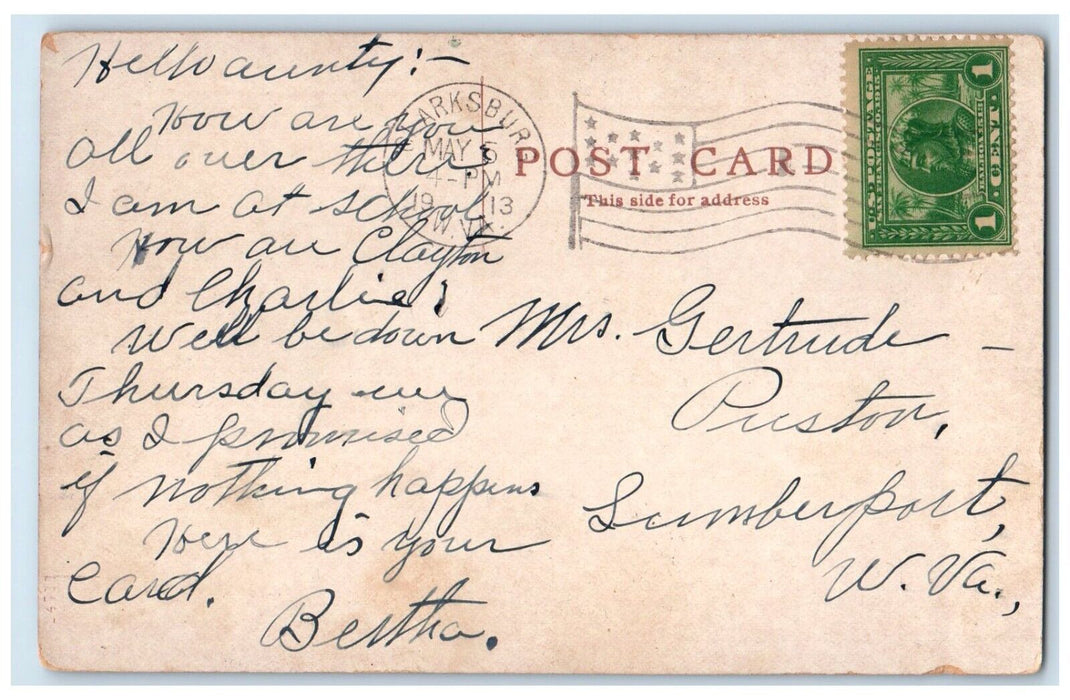 Hello aunty:-
How are you
all over there
I am at school
How are Clayton
and Charlie?
Well be down
Thursday eve
as I promised
if nothing happens
Here is your
card.
Bertha.
CLARKSBURG
MAY 5
4-PM
19 13
W.VA.
POST CARD
This side for address
U.S. POSTAGE
SAN FRANCISCO 1915
BALBOA 1513
1 CENT 1
Mrs. Gertrude
Puston,
Lumberport,
W. Va.,